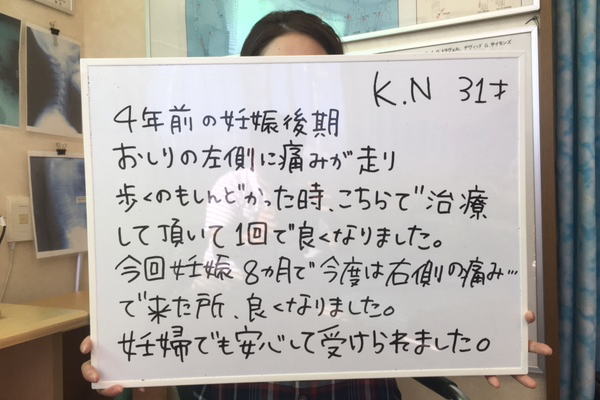 K.N 31才
4年前の妊娠後期
おしりの左側に痛みが走り
歩くのもしんどかった時、こちらで治療
して頂いて1回で良くなりました。
今回妊娠8カ月で今度は右側の痛み…
で来た所、良くなりました。
妊婦でも安心して受けられました。